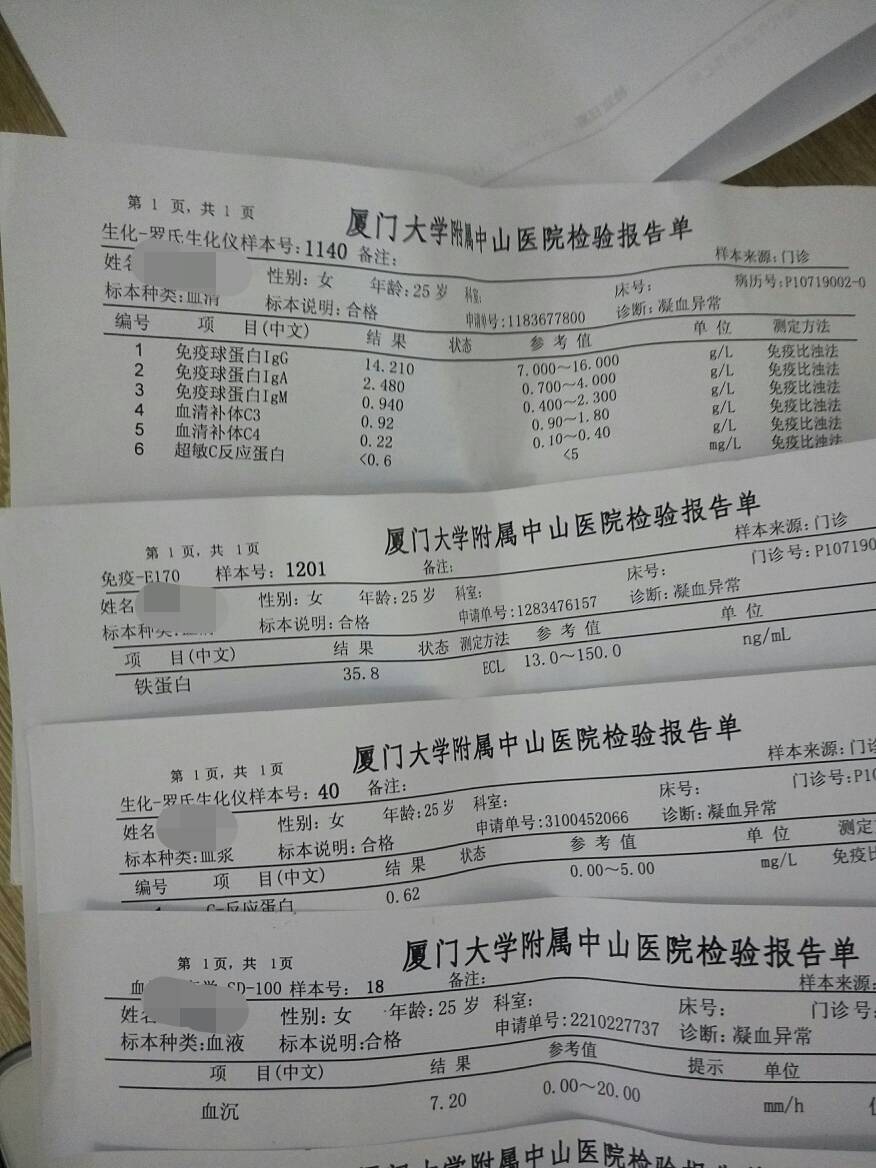 厦门大学附属中山医院检验报告单
第 1 页,共 1 页
生化-罗氏生化仪样本号:1140 备注: 样本来源:门诊
姓名 性别:女 年龄:25岁 科室: 床号: 病历号:P10719002-0
标本种类:血清 标本说明:合格 申请单号:1183677800 诊断:凝血异常
编号 项 目(中文) 结 果 状态 参 考 值 单 位 测定方法
1 免疫球蛋白IgG 14.210 7.000～16.000 g/L 免疫比浊法
2 免疫球蛋白IgA 2.480 0.700～4.000 g/L 免疫比浊法
3 免疫球蛋白IgM 0.940 0.400～2.300 g/L 免疫比浊法
4 血清补体C3 0.92 0.90～1.80 g/L 免疫比浊法
5 血清补体C4 0.22 0.10～0.40 g/L 免疫比浊法
6 超敏C反应蛋白 <0.6 <5 mg/L 免疫比浊法
厦门大学附属中山医院检验报告单
第 1页,共 1页
免疫-E170 样本号: 1201 备注: 样本来源:门诊
姓名 性别:女 年龄:25岁 科室: 床号: 门诊号:P107190
标本种类: 标本说明:合格 申请单号:1283476157 诊断:凝血异常
项 目(中文) 结 果 状态 测定方法 参 考 值 单 位
铁蛋白 35.8 ECL 13.0～150.0 ng/mL
厦门大学附属中山医院检验报告单
第 1页,共 1页
生化-罗氏生化仪样本号: 40 备注: 样本来源:门诊
姓名 性别:女 年龄:25岁 科室: 床号: 门诊号:P10
标本种类:血浆 标本说明:合格 申请单号:3100452066 诊断:凝血异常
编号 项 目(中文) 结 果 状态 参 考 值 单 位 测定
C-反应蛋白 0.62 0.00～5.00 mg/L 免疫比
厦门大学附属中山医院检验报告单
第 1页,共 1页
血 SD-100 样本号: 18 备注: 样本来源:
姓名 性别:女 年龄:25岁 科室: 床号: 门诊号:
标本种类:血液 标本说明:合格 申请单号:2210227737 诊断:凝血异常
项 目(中文) 结 果 参考值 提示 单位
血沉 7.20 0.00～20.00 mm/h
厦门大学附属中山医院检验报告单